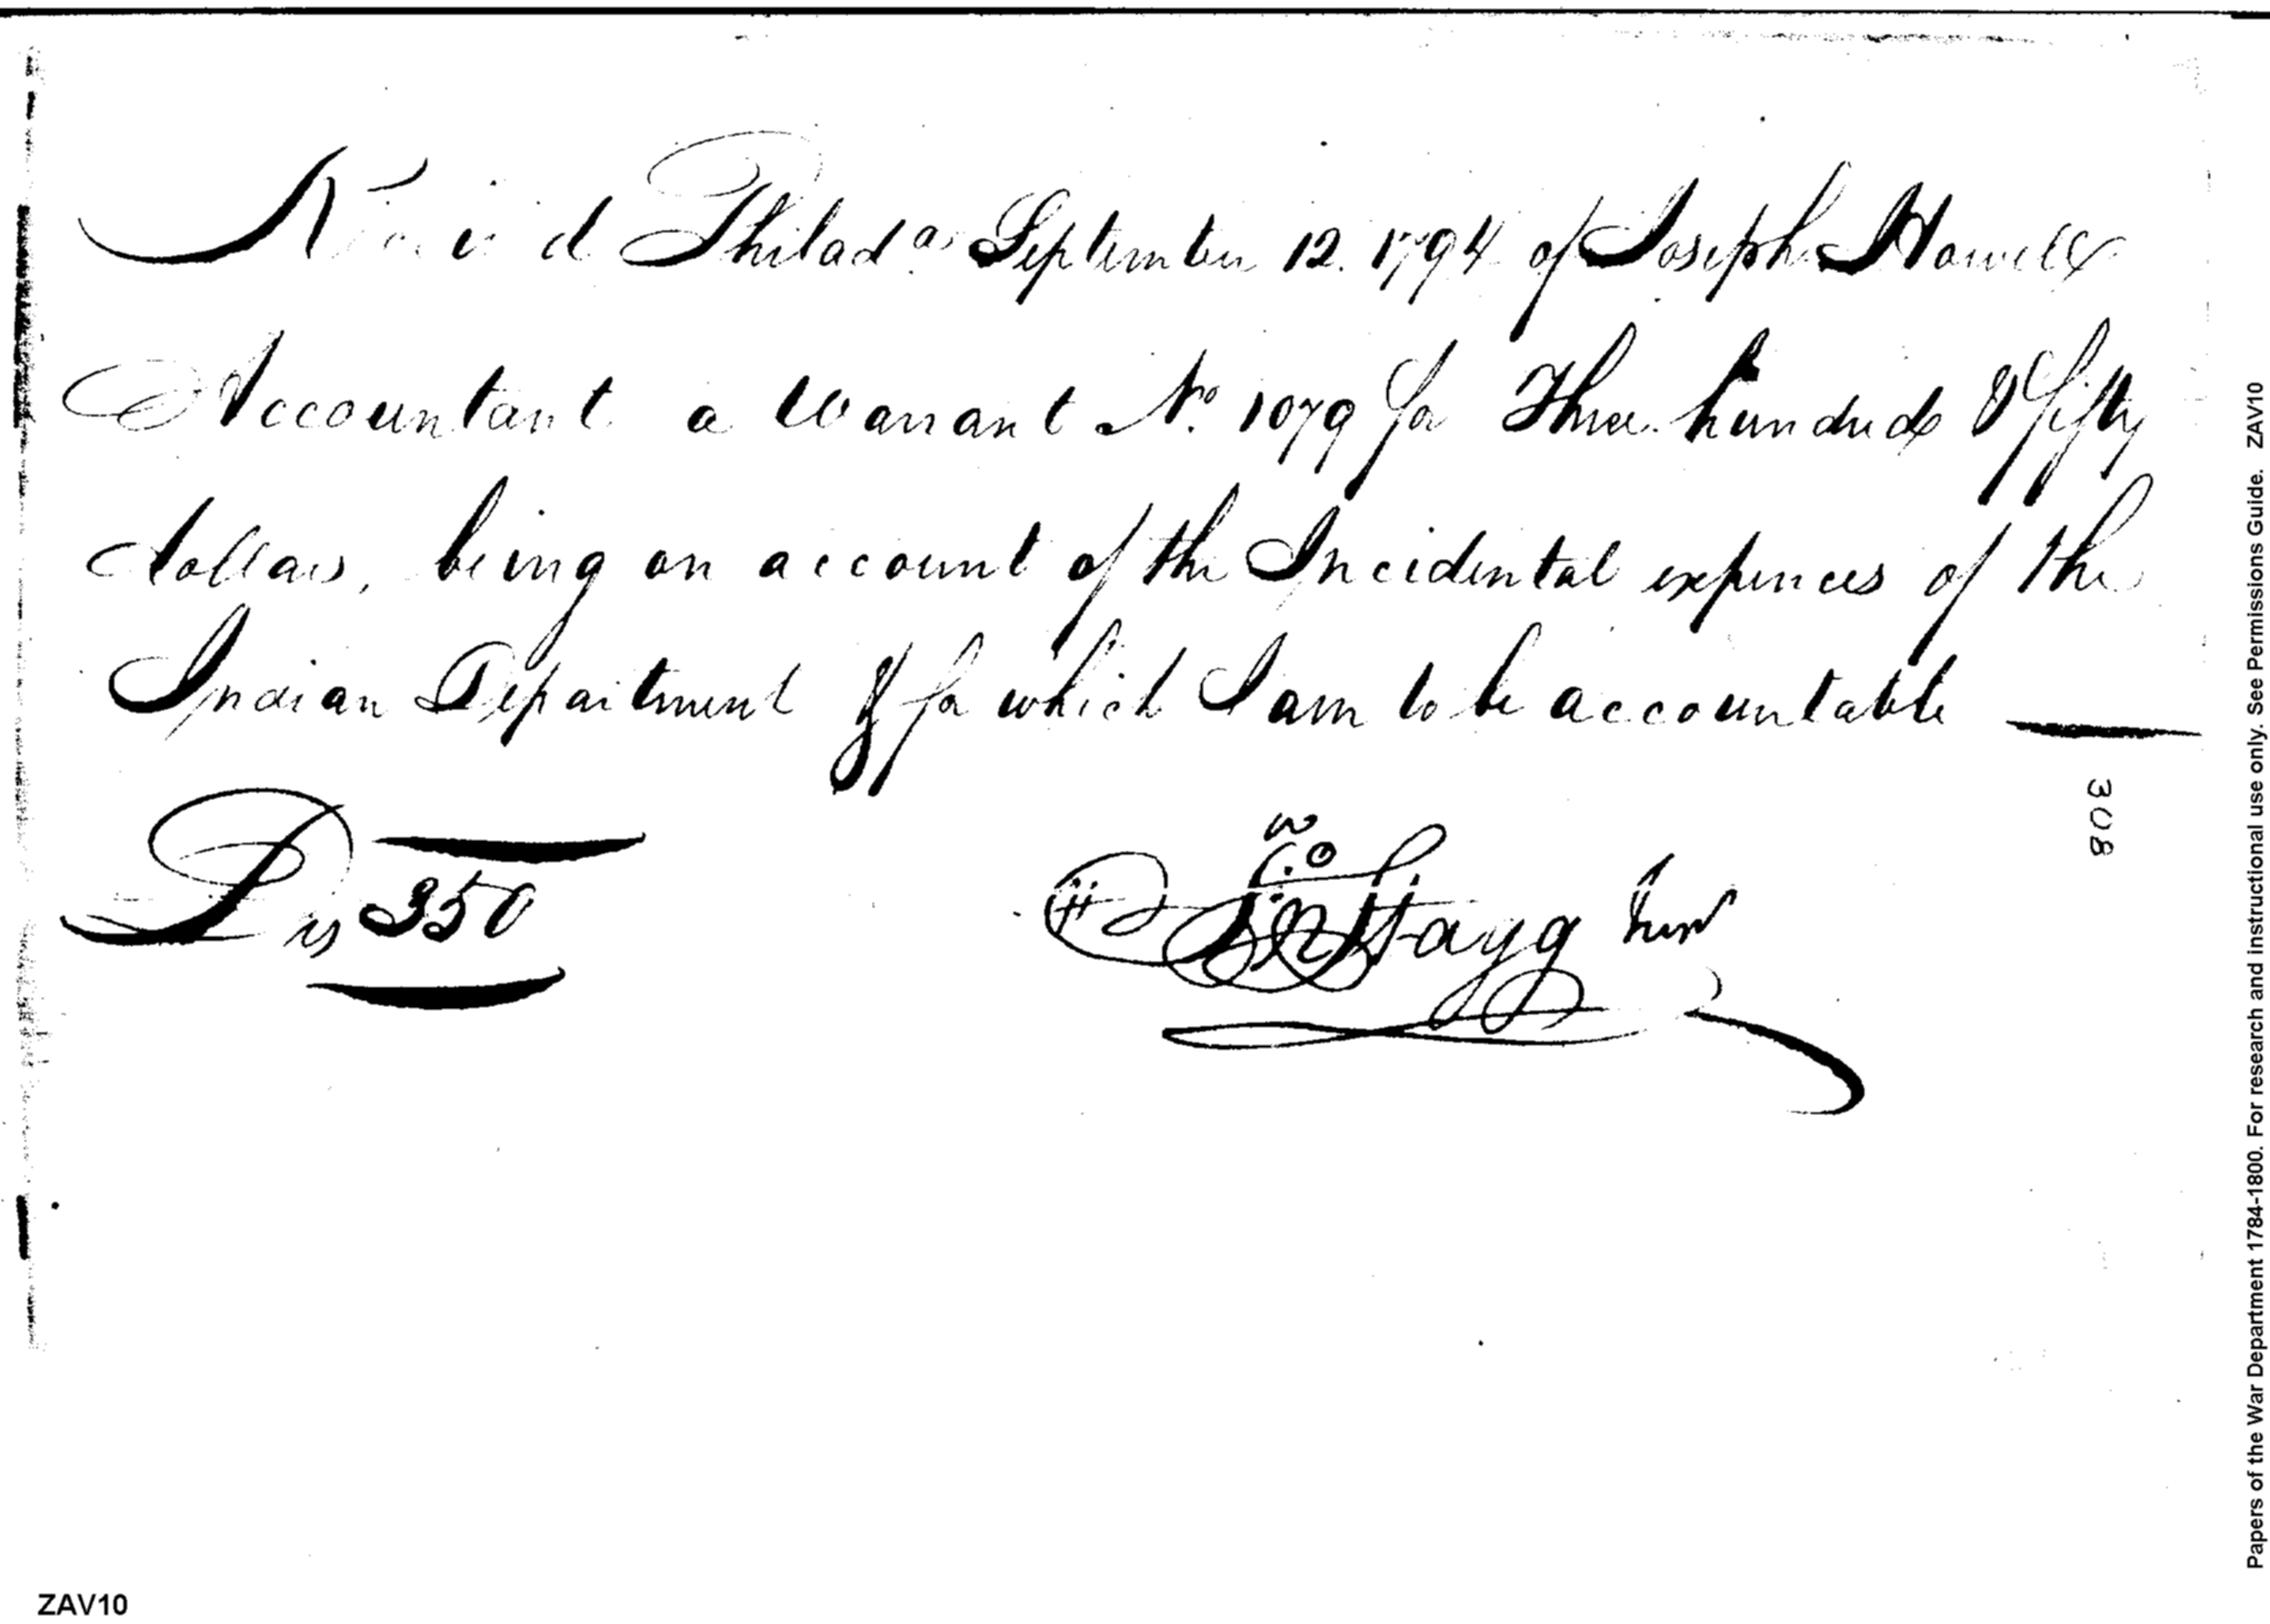 Received Philad.a September 12. 1794 of Joseph Howell
Accountant a Warrant No. 1079 for Three hundred & fifty
dollars, being on account of the Incidental expences of the
Indian Department & for which I am to be accountable
308
Drs 350
Jn Stagg Junr
Papers of the War Department 1784-1800. For research and instructional use only. See Permissions Guide. ZAV10
ZAV10